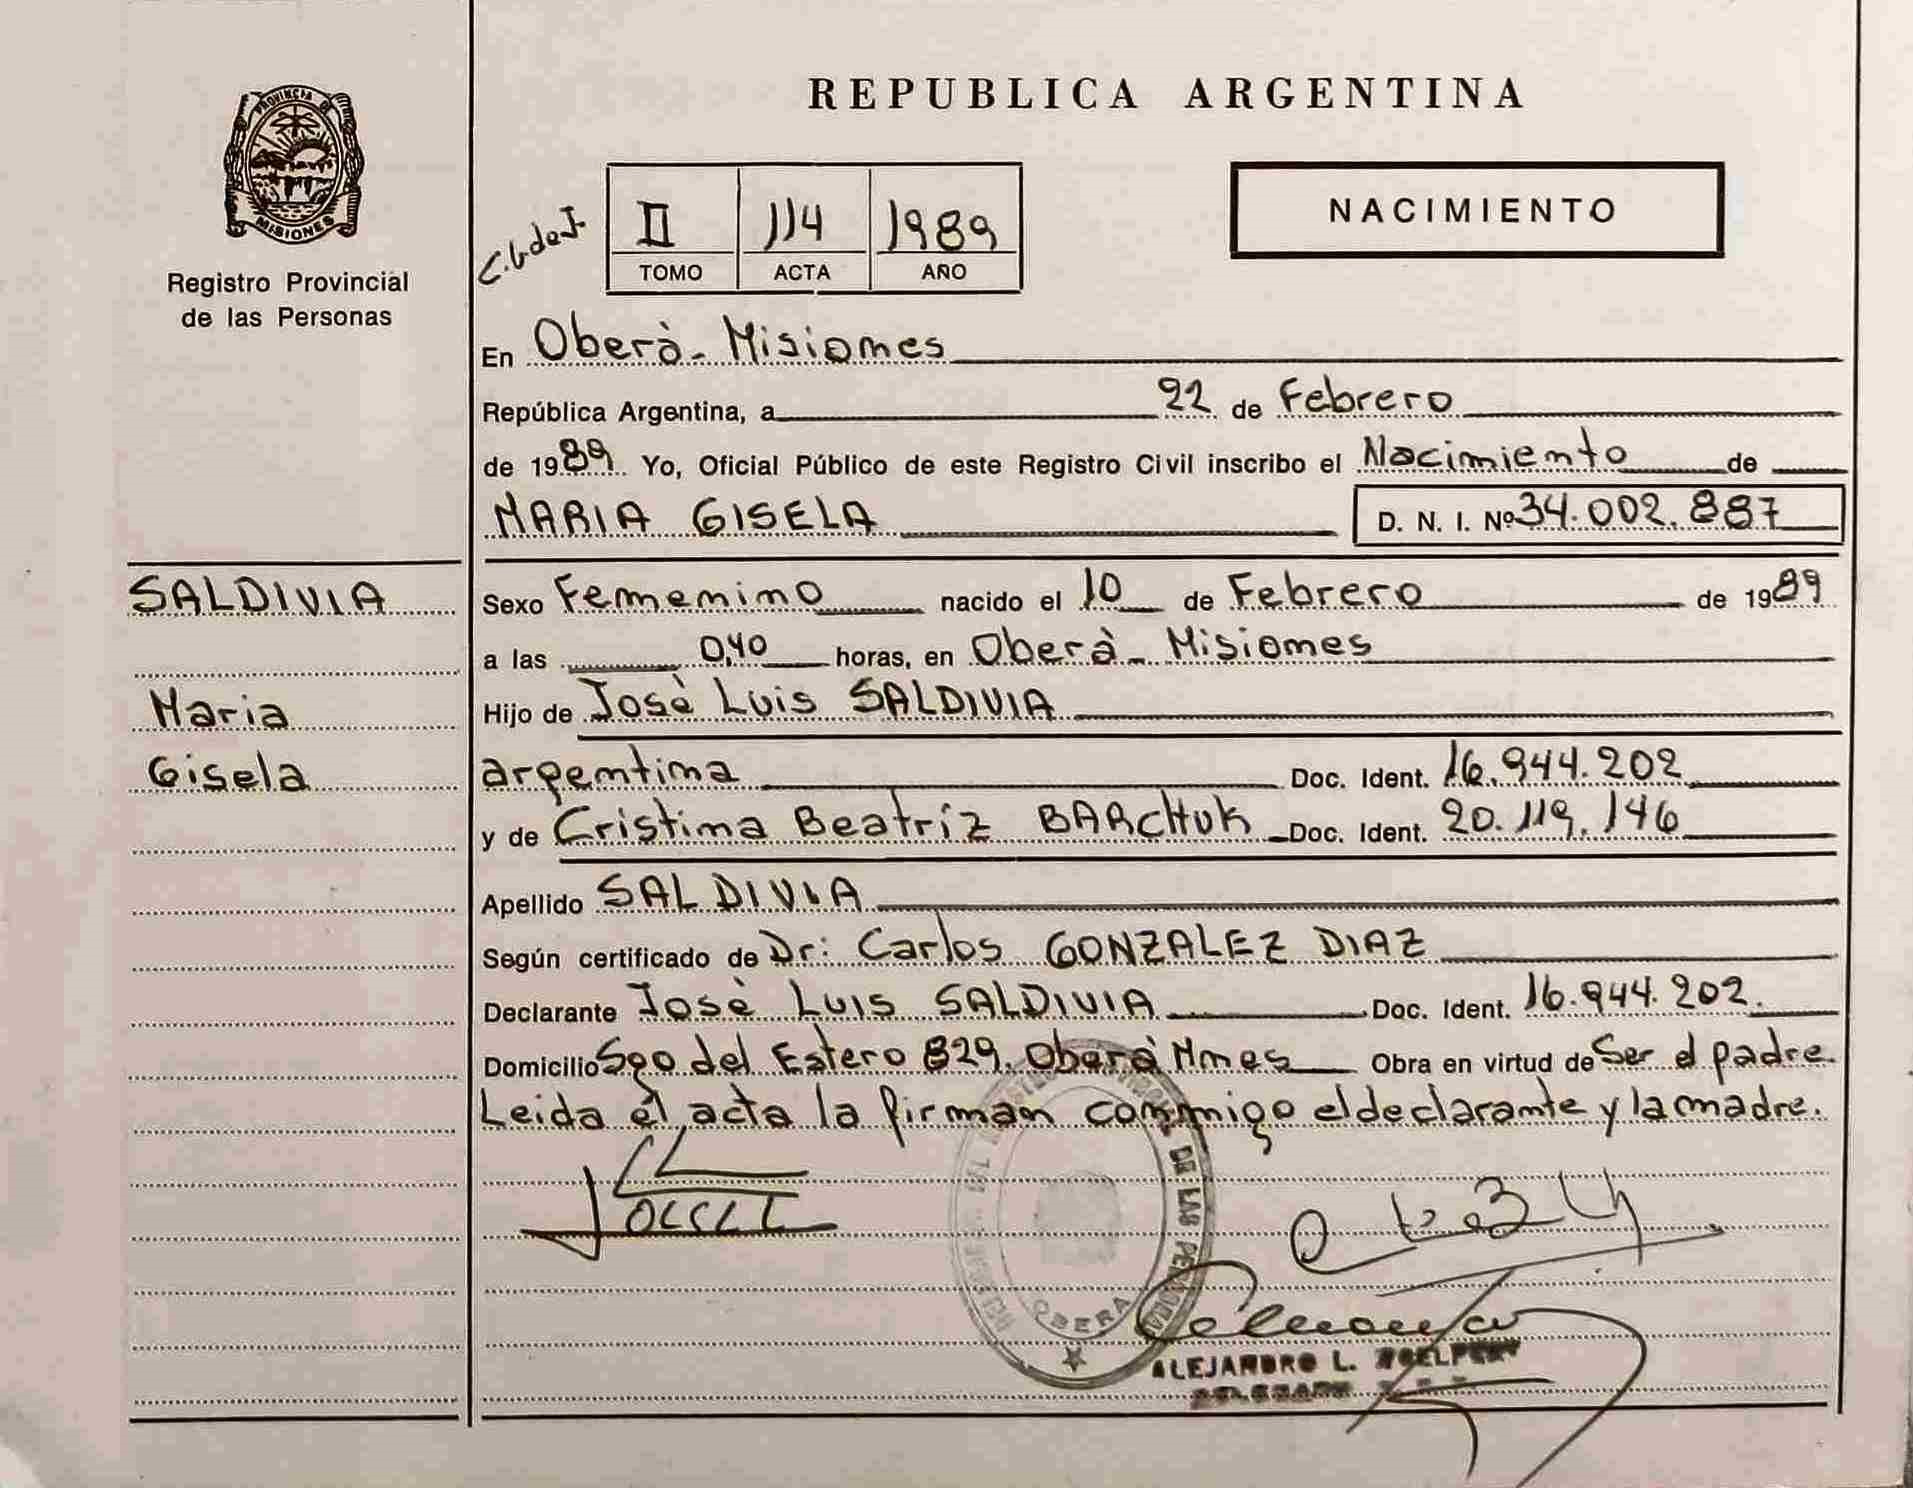 REPUBLICA ARGENTINA
PROVINCIA DE
MISIONES
Registro Provincial
de las Personas
NACIMIENTO
II 114 1989
TOMO ACTA AÑO
En Oberà - Misiones
República Argentina, a 22 de Febrero
de 1989 Yo, Oficial Público de este Registro Civil inscribo el Nacimiento de
MARIA GISELA D. N. I. Nº 34.002.887
SALDIVIA
Maria
Gisela
Sexo Femenino nacido el 10 de Febrero de 1989
a las 0,40 horas, en Oberà - Misiones
Hijo de Josè Luis SALDIVIA
argentina Doc. Ident. 16.944.202
y de Cristina Beatríz BARCHUK Doc. Ident. 20.119.146
Apellido SALDIVIA
Según certificado de Dr: Carlos GONZALEZ DIAZ
Declarante Josè Luis SALDIVIA Doc. Ident. 16.944.202.
Domicilio Sgo del Estero 829. Oberà Mnes Obra en virtud de Ser el padre.
Leida el acta la firman conmigo el declarante y la madre.
DE LAS
OBERA
ALEJANDRO L.